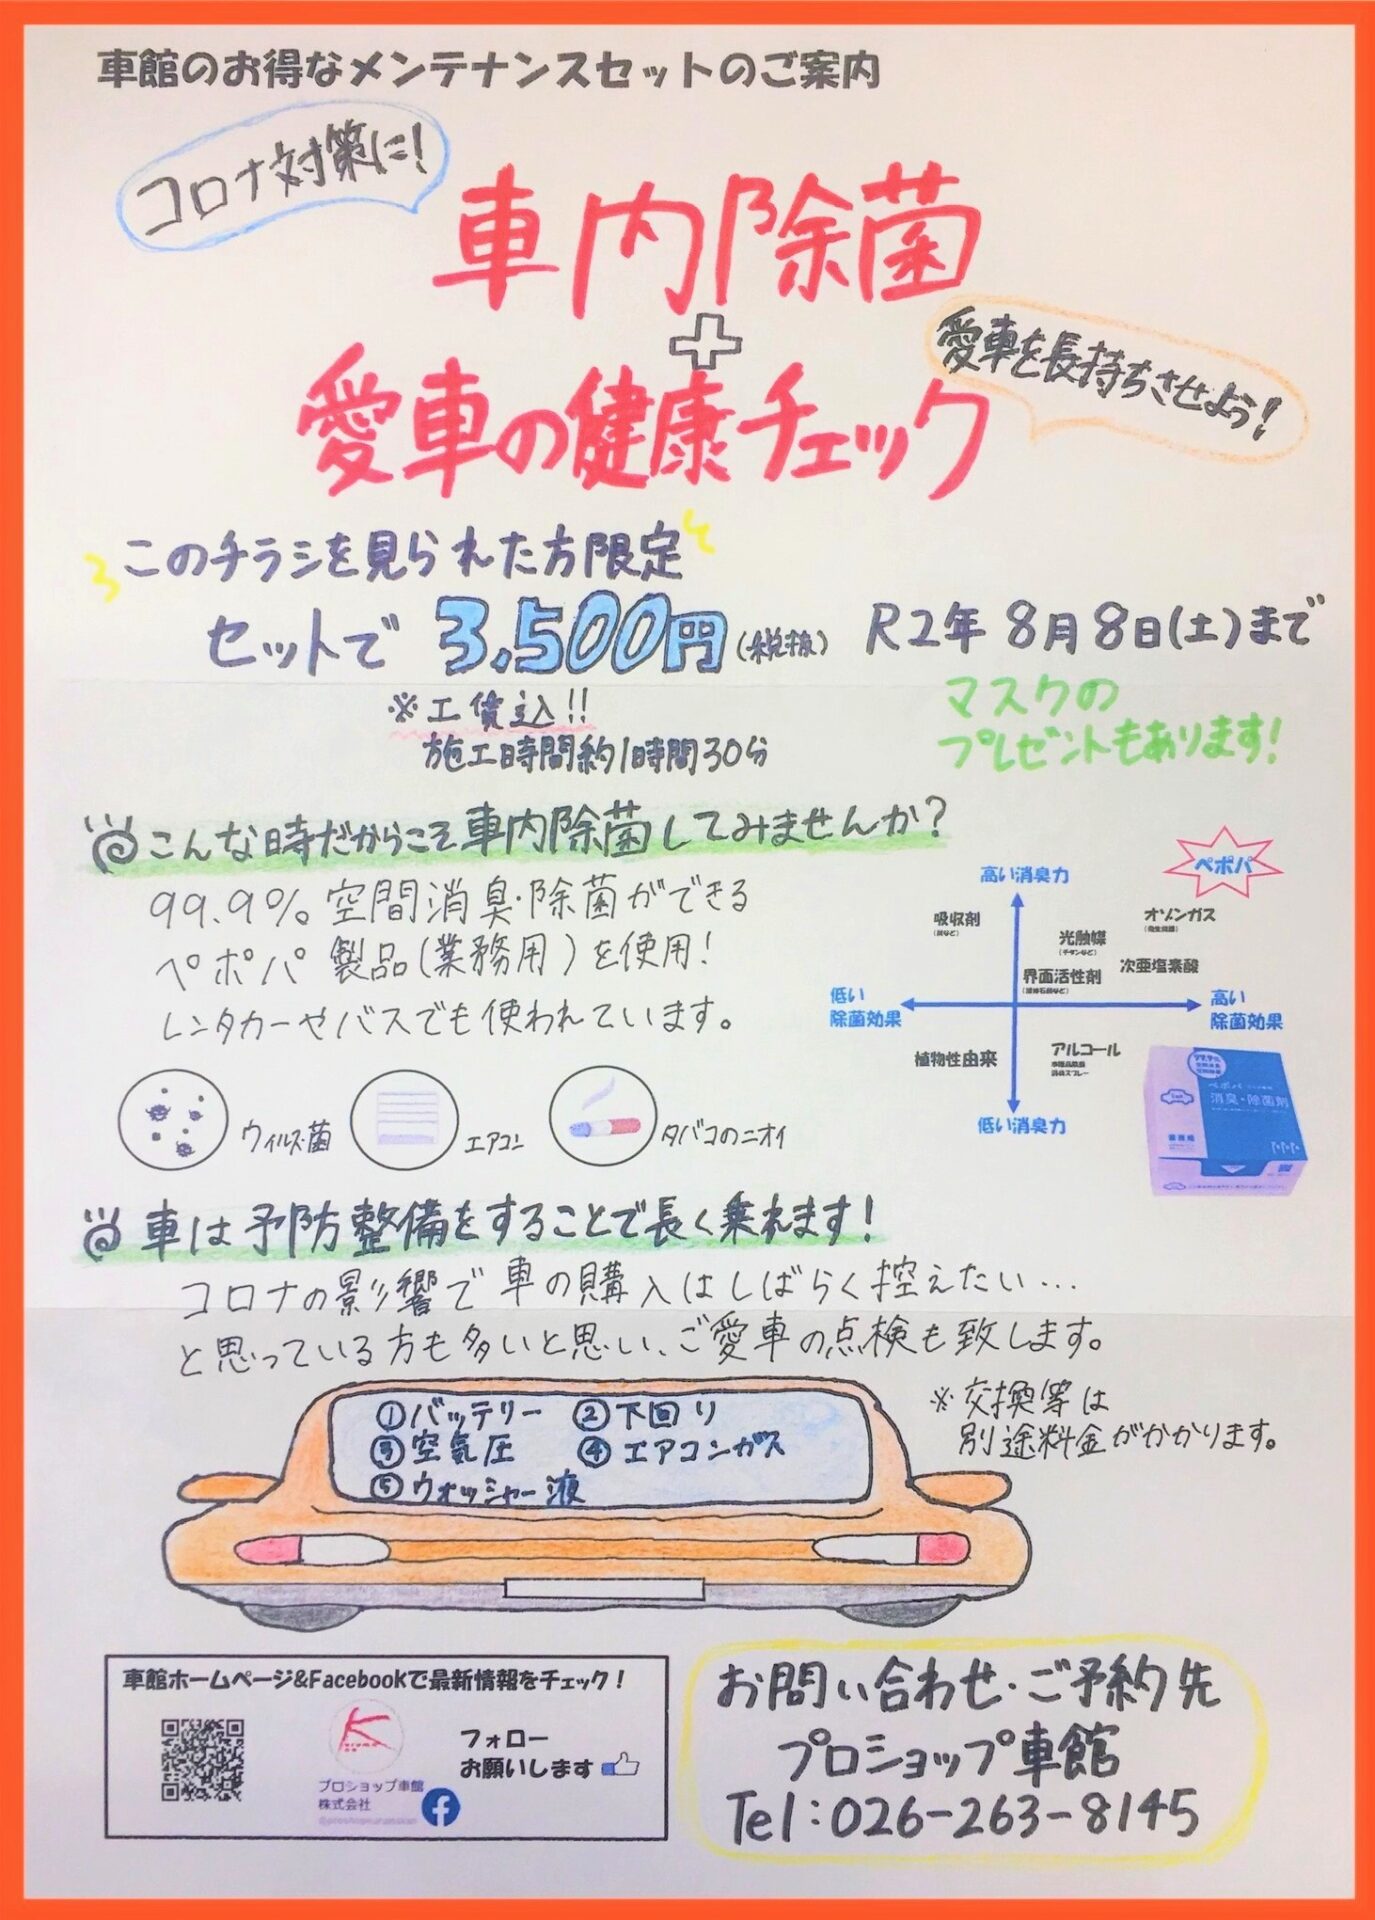 車館のお得なメンテナンスセットのご案内
コロナ対策に!
車内除菌
+
愛車の健康チェック
愛車を長持ちさせよう!
このチラシを見られた方限定
セットで 3,500円(税抜) R2年 8月8日(土)まで
※工賃込!!
施工時間約1時間30分
マスクの
プレゼントもあります!
こんな時だからこそ車内除菌してみませんか?
99.9%空間消臭·除菌ができる
ペポパ製品(業務用)を使用!
レンタカーやバスでも使われています。
ペポパ
高い消臭力
吸収剤
オゾンガス
光触媒
界面活性剤
次亜塩素酸
低い
除菌効果
高い
除菌効果
植物性由来
アルコール
低い消臭力
99.9%
ペポパ
消臭・除菌剤
ウィルス・菌
エアコン
タバコのニオイ
車は予防整備をすることで長く乗れます!
コロナの影響で車の購入はしばらく控えたい…
と思っている方も多いと思い、ご愛車の点検も致します。
※交換等は
別途料金がかかります。
①バッテリー ②下回り
③空気圧 ④エアコンガス
⑤ウォッシャー液
車館ホームページ&Facebookで最新情報をチェック!
Kuruma
フォロー
お願いします
プロショップ車館
株式会社
お問い合わせ・ご予約先
プロショップ車館
Tel:026-263-8145